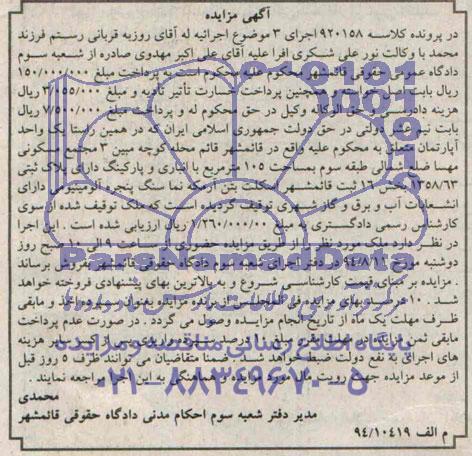 آگهی مزایده
در پرونده کلاسه ۹۲۰۱۵۸ اجرای ۳ موضوع اجرائیه له آقای روزبه قربانی رستم فرزند
محمد با وکالت نور علی شکری افرا علیه آقای علی اکبر مهدوی صادره از شعبه سوم
دادگاه عمومی حقوقی قائمشهر محکوم علیه محکوم است به پرداخت مبلغ ۱۵۰/۰۰۰/۰۰۰
ریال بابت اصل خواسته و همچنین پرداخت خسارت تأخیر تأدیه و مبلغ ۳/۰۵۵/۰۰۰ ریال
هزینه دادرسی و حق الوکاله وکیل در حق محکوم له و پرداخت مبلغ ۷/۵۰۰/۰۰۰ ریال
بابت نیم عشر دولتی در حق دولت جمهوری اسلامی ایران که در همین راستا یک واحد
آپارتمان متعلق به محکوم علیه واقع در قائمشهر قائم محله کوچه مبین ۳ مجتمع مسکونی
مهسا ضلع شمالی طبقه سوم بمساحت ۱۰۵ مترمربع با انباری و پارکینگ دارای پلاک ثبتی
۱۳۵۸/۶۳ بخش ۱۶ ثبت قائمشهر اسکلت بتن آرمه نما سنگ پنجره آلومینیوم دارای
انشعابات آب و برق و گاز شهری توقیف گردیده است که ملک توقیف شده از سوی
کارشناس رسمی دادگستری به مبلغ ۲/۳۶۰/۰۰۰/۰۰۰ ریال ارزیابی شده است . این اجرا
در نظر دارد ملک مورد نظر را از طریق مزایده حضوری از ساعت ۹ الی ۱۰ صبح روز
دوشنبه مورخ ۹۴/۸/۱۳ در دفتر اجرای شعبه سوم دادگاه حقوقی قائمشهر بفروش برساند
. مزایده بر مبنای قیمت کارشناسی شروع و به بالاترین بهای پیشنهادی فروخته خواهد
شد . ۱۰ درصد بهای مزایده فی المجلس از برنده مزایده بعنوان سپرده اخذ و مابقی
ظرف مهلت یک ماه از تاریخ انجام مزایده وصول می گردد . در صورت عدم پرداخت
مابقی ثمن مزایده در مهلت مقرر مبلغ ۱۰ درصد سپرده واریزی پس از کسر سایر هزینه
های اجرای به نفع دولت ضبط خواهد شد . ضمنا متقاضیان می توانند ظرف ۵ روز قبل
از موعد مزایده جهت رویت مال مورد مزایده و هماهنگی به این اجرا مراجعه نمایند .
محمدی
مدیر دفتر شعبه سوم احکام مدنی دادگاه حقوقی قائمشهر
م الف ۹۴/۱۰۴۱۹
ParsNamadData
پایگاه اطلاع رسانی مناقصه و مزایده
۰۲۱-۸۸۳۴۹۶۷۰-۵